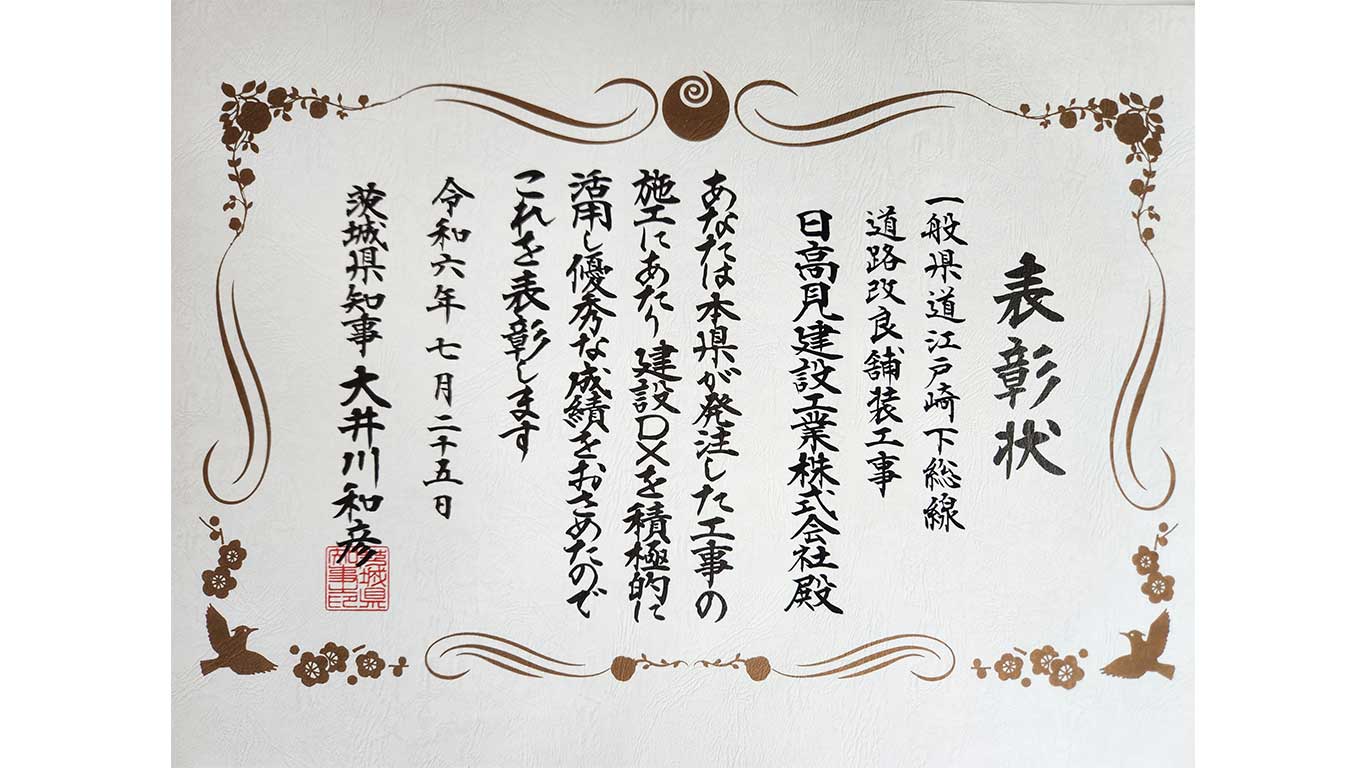 表彰状
一般県道江戸崎下総線
道路改良舗装工事
日高見建設工業株式会社殿
あなたは本県が発注した工事の
施工にあたり建設DXを積極的に
活用し優秀な成績をおさめたので
これを表彰します
令和六年七月二十五日
茨城県知事 大井川和彦
茨城県
知事印